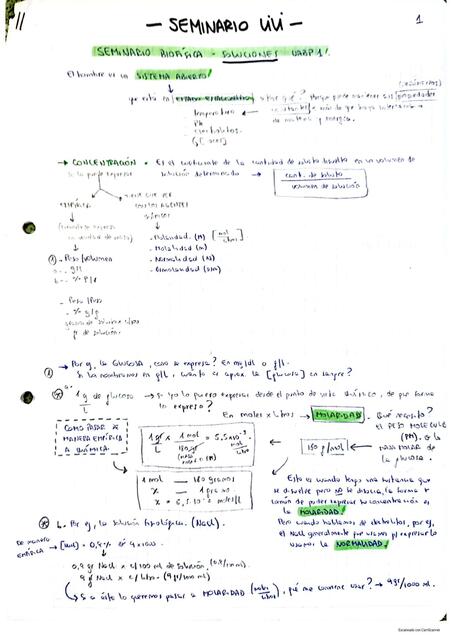 11
1
— SEMINARIO UVI —
SEMINARIO BIOFÍSICA - SOLUCIONES UABP 1!
El hombre es un SISTEMA ABIERTO!
que está en ESTADO ESTACIONARIO ¿Por qué? Porque puede mantener sus propiedades
constantes a más de que haya intercambio
de materia y energía.
- temperatura
- PH
→ CONCENTRACIÓN = Es el cociente de la cantidad de soluto disuelto en un volumen de
solución determinado → cant. de soluto
volumen de solución
Se la puede expresar
EMPÍRICA
QUÍMICOS
- Molaridad (M) [mol/litro]
- Molalidad (m)
- Normalidad (N)
- Osmolaridad (Osm)
① - Peso/volumen
- g/l
- % P/V
- Peso/Peso
- % g/g
gr de solución.
① → Por ej, la GLUCOSA, cómo se expresa? En mg/dl o g/l.
Si la nombramos en g/l, cuánto es aprox. la [glucosa] en sangre?
1 g/L de glucosa → si yo lo quiero expresar desde el punto de vista químico, de qué forma
lo expreso?
En moles x litros → MOLARIDAD. Qué necesito?
el PESO MOLECULAR
(PM) o la
MASA MOLAR
de la glucosa.
COMO PASAR DE
MANERA EMPÍRICA
A QUÍMICA.
1 g/L x 1 mol / 180 g = 5,5x10⁻³ mol/litro
180 g/mol
1 mol — 180 gramos
x — 1 gramo
x = 5,5.10⁻³ moles/l
Esto es cuando tengo una sustancia que
se disuelve pero no se disocia, la forma +
común de poder expresar su concentración es
la MOLARIDAD!
Pero cuando hablamos de electrolitos, por ej,
el NaCl generalmente para expresarlo
usamos la NORMALIDAD!
b. Por ej, la solución fisiológica. (NaCl).
DE MANERA
EMPÍRICA → [NaCl] = 0,9%
0,9 g NaCl x c/100 ml de solución. (0,9/100ml)
9 g NaCl x c/litro (9 g/1000 ml)
→ Si a ésto lo queremos pasar a MOLARIDAD (moles/litro), qué me conviene usar? → 9 g/1000 ml.
Escaneado con CamScanner